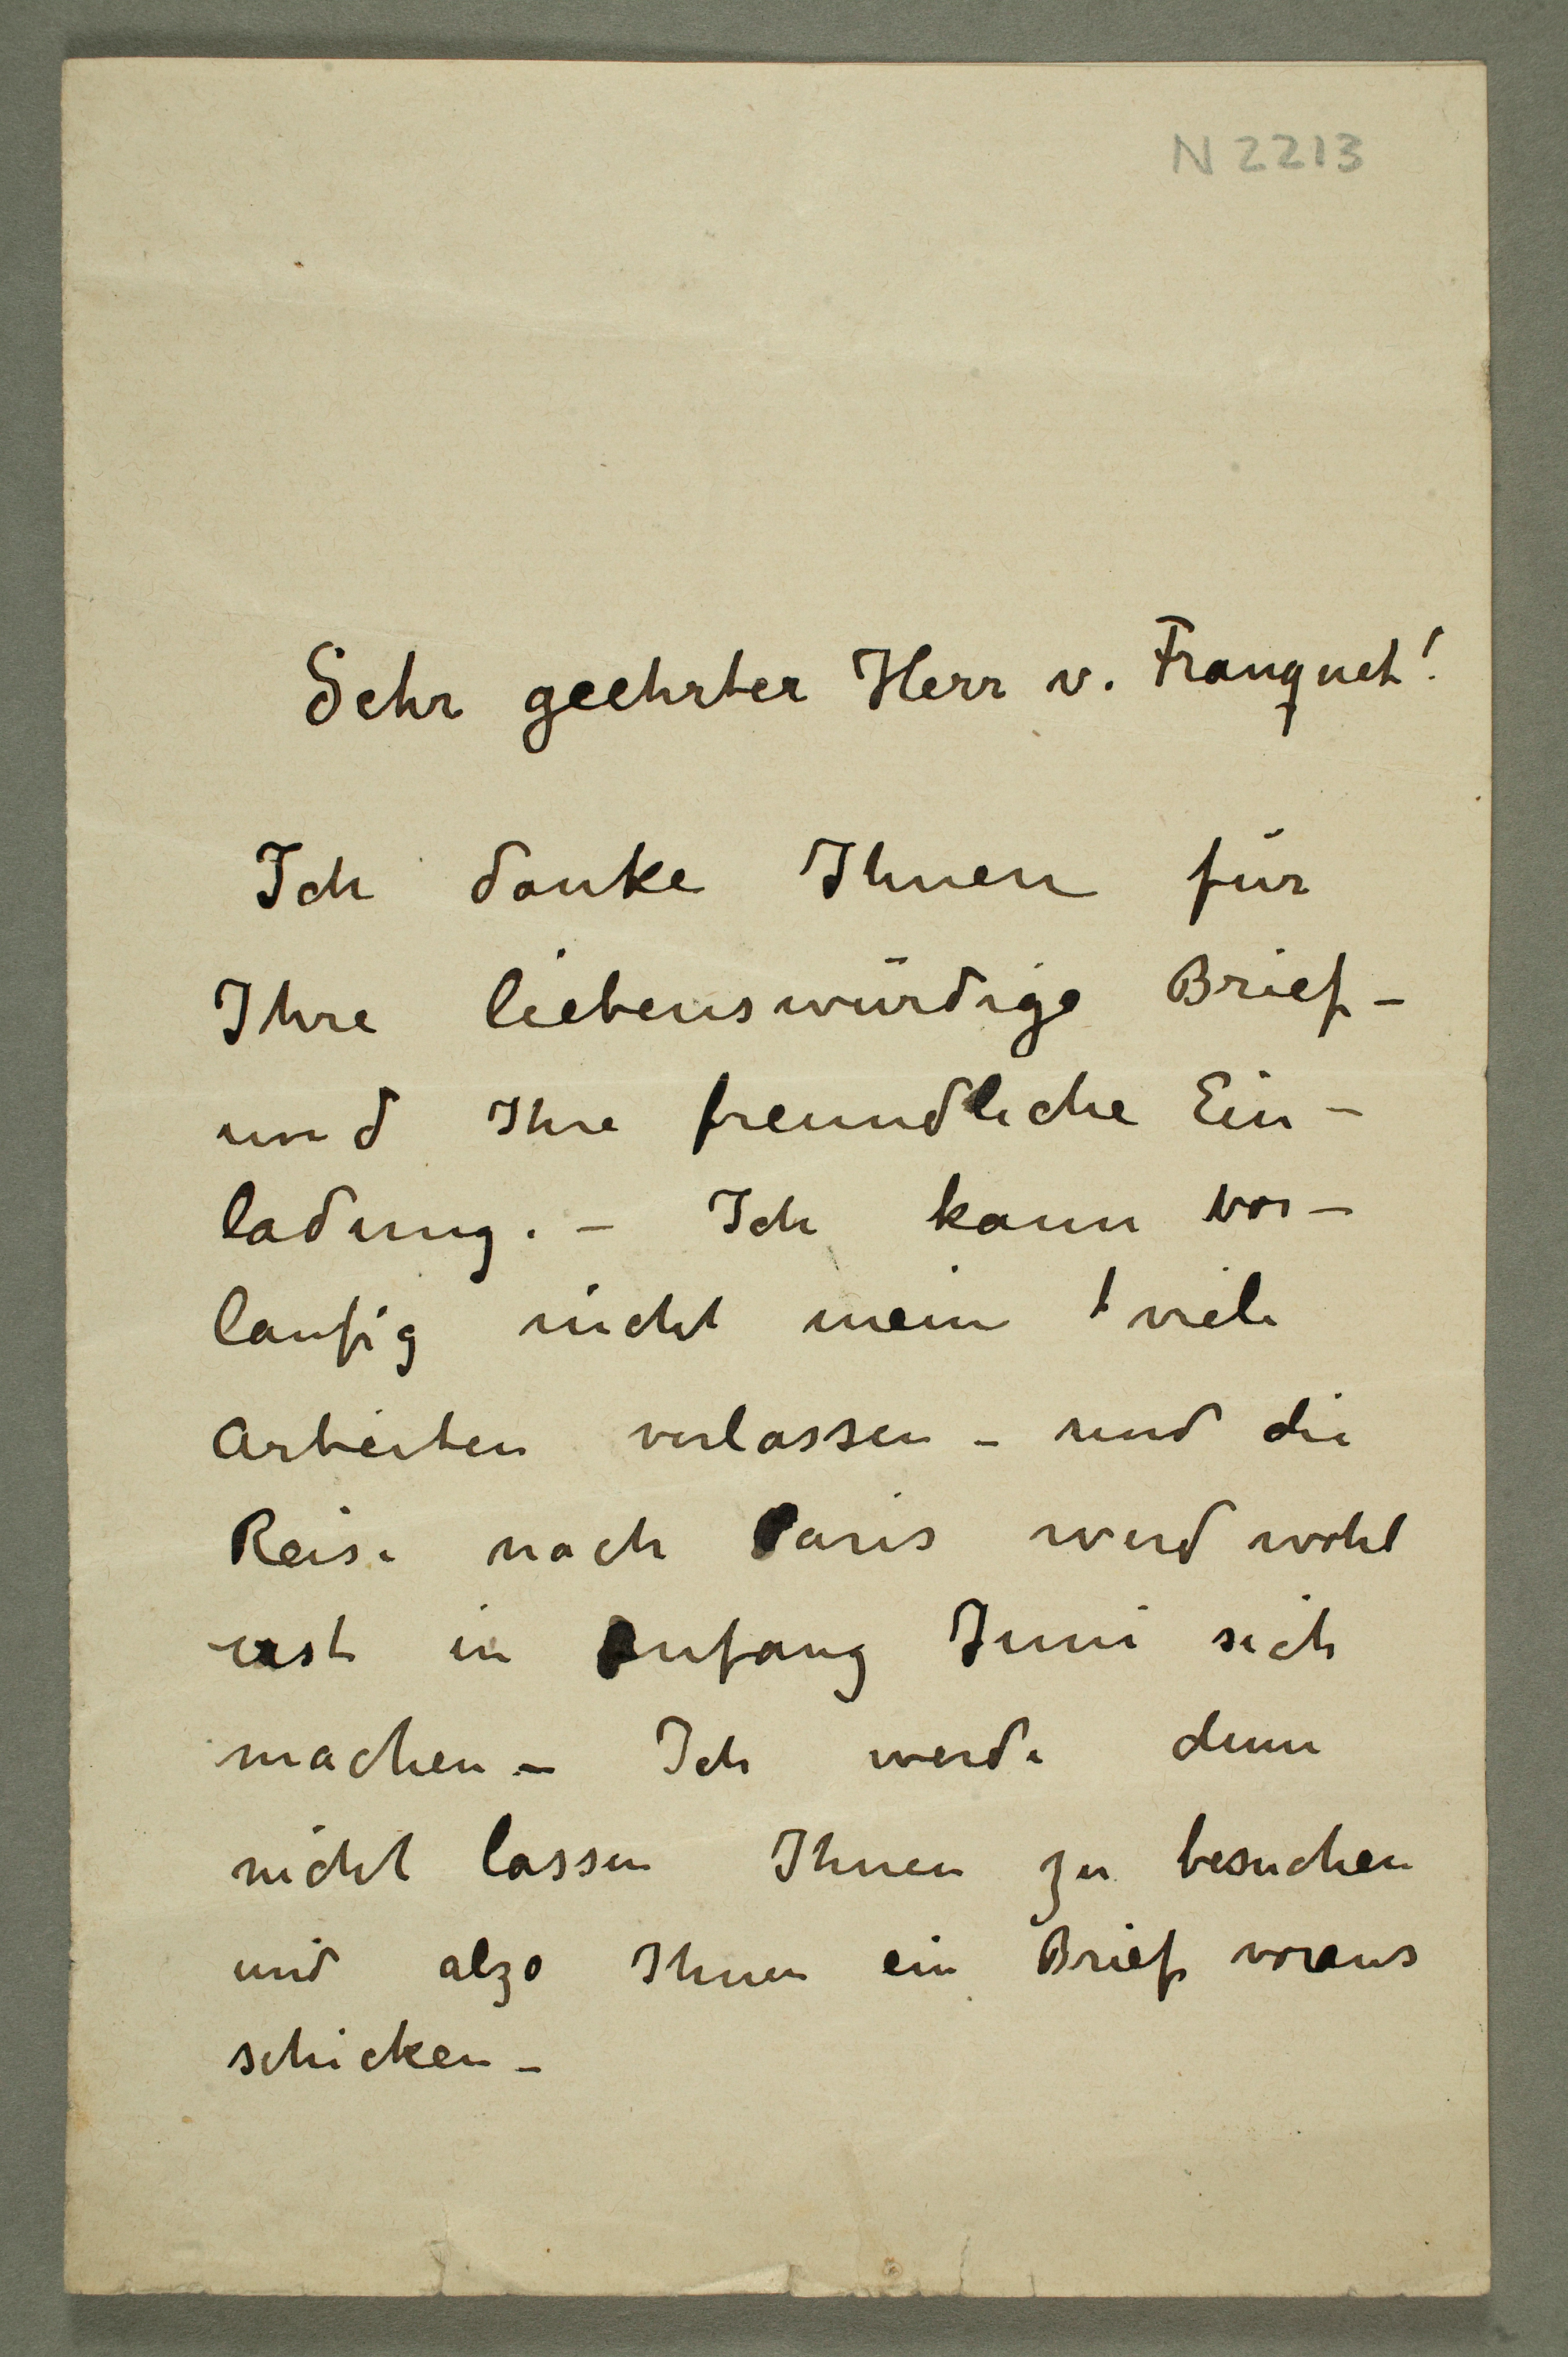 N 2213
Sehr geehrter Herr v. Franquet!
Ich danke Ihnen für
Ihre liebenswürdige Brief –
und Ihre freundliche Ein –
ladung. – Ich kann vor –
laufig nicht mein viele
Arbeiten verlassen – und die
Reise nach Paris werd wohl
erst in Anfang Juni sich
machen – Ich werde denn
nicht lassen Ihnen zu besuchen
und alzo Ihnen ein Brief voraus
schicken –